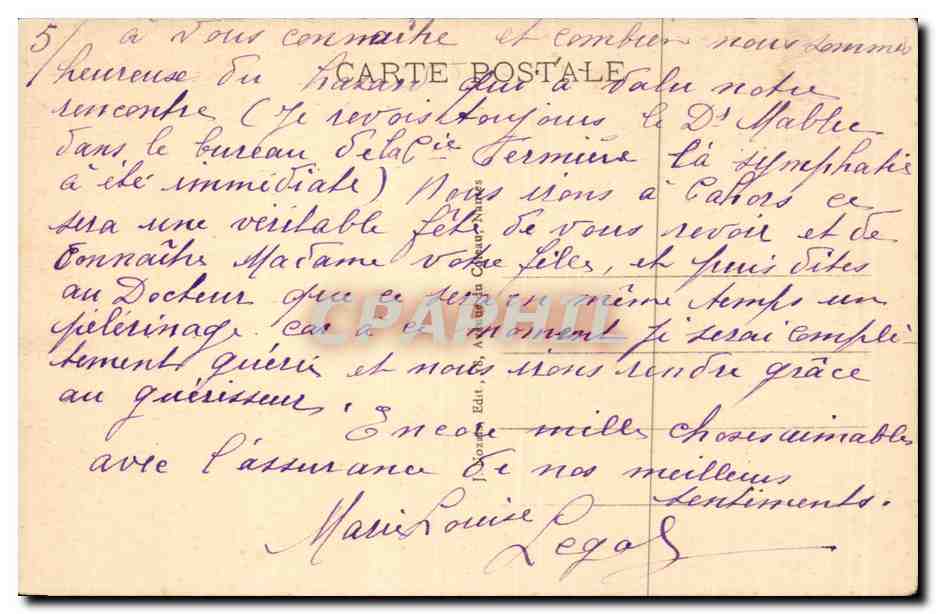 5/ à vous connaître et combien nous sommes
CARTE POSTALE
heureuse du hazard qui a valu notre
rencontre (Je revois toujours le Dr Mablee
dans le bureau de la Cie Fermière là symphatie
à été immédiate) Nous irons à Cahors ce
sera une véritable fête de vous revoir et de
connaître Madame votre fille, et puis dites
au Docteur que ce sera en même temps un
pélérinage car à ce moment je serai complè-
tement guérie et nous irons rendre grâce
au guérisseur.
Encore milles choses aimables
avec l'assurance de nos meilleurs
sentiments.
Marie Louise
Legal
J. Nozais Edit., 18, Avenue du Coteau, Nantes
CPAPHIL